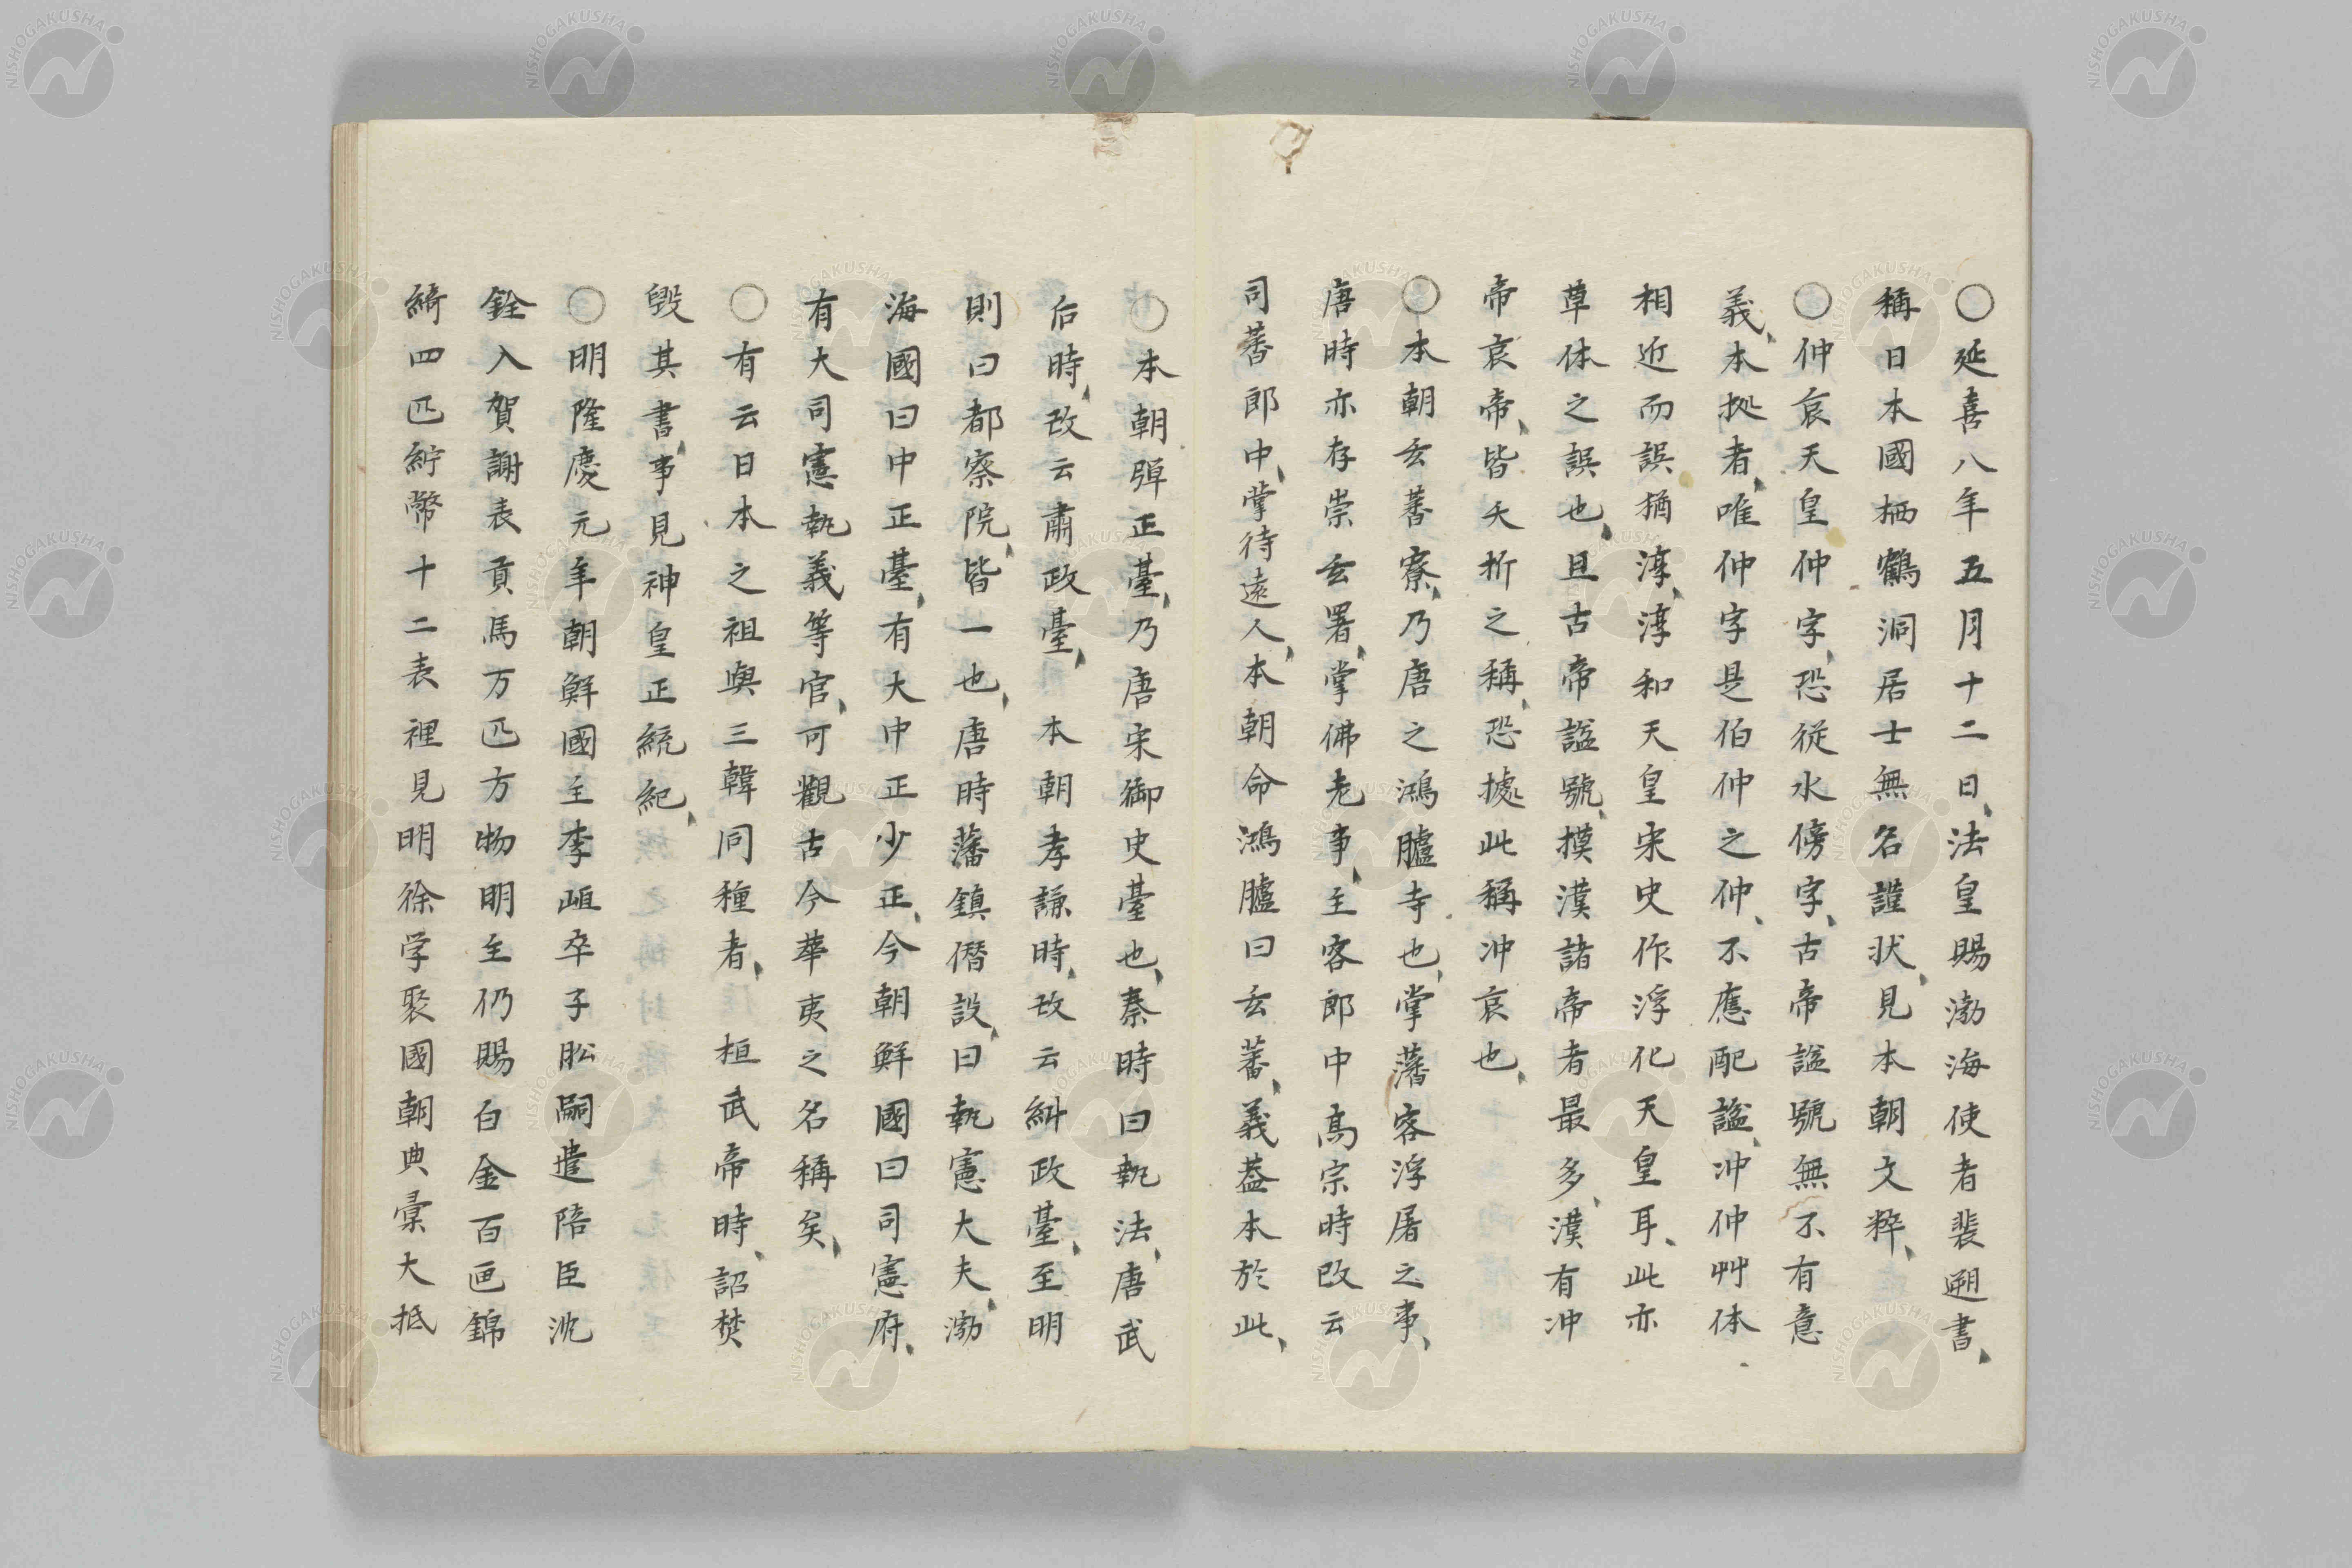 〇延喜八年五月十二日、法皇賜渤海使者裴遡書、
稱日本國栖鶴洞居士無名謹状、見本朝文粹、
〇仲哀天皇仲字、恐従水傍字、古帝諡號無不有意
義、本拠者、唯仲字是伯仲之仲、不應配諡、冲仲艸体
相近而誤猶渟、渟和天皇宋史作浮化天皇耳、此亦
草体之誤也、且古帝諡號、摸漢諸帝者最多、漢有冲
帝哀帝、皆夭折之稱、恐據此稱冲哀也、
〇本朝玄蕃寮、乃唐之鴻臚寺也、掌藩客浮屠之事、
唐時亦存崇玄署、掌佛老事、主客郎中高宗時改云
司蕃郎中、掌待遠人、本朝命鴻臚曰玄蕃、義蓋本於此、
〇本朝彈正臺、乃唐宋御史臺也、秦時曰執法、唐武
后時、改云肅政臺、本朝孝謙時、改云糾政臺、至明
則曰都察院、皆一也、唐時藩鎮僭設、曰執憲大夫、渤
海國曰中正臺、有大中正少正、今朝鮮國曰司憲府、
有大司憲執義等官、可觀古今華夷之名稱矣、
〇有云日本之祖與三韓同種者、桓武帝時、詔焚
毀其書、事見神皇正統紀、
〇明隆慶元年朝鮮國主李峘卒子昖嗣遣陪臣沈
銓入賀謝表貢馬万匹方物明主仍賜白金百両錦
綺四匹紵幣十二表裡見明徐学聚國朝典彙大抵
NISHOGAKUSHA